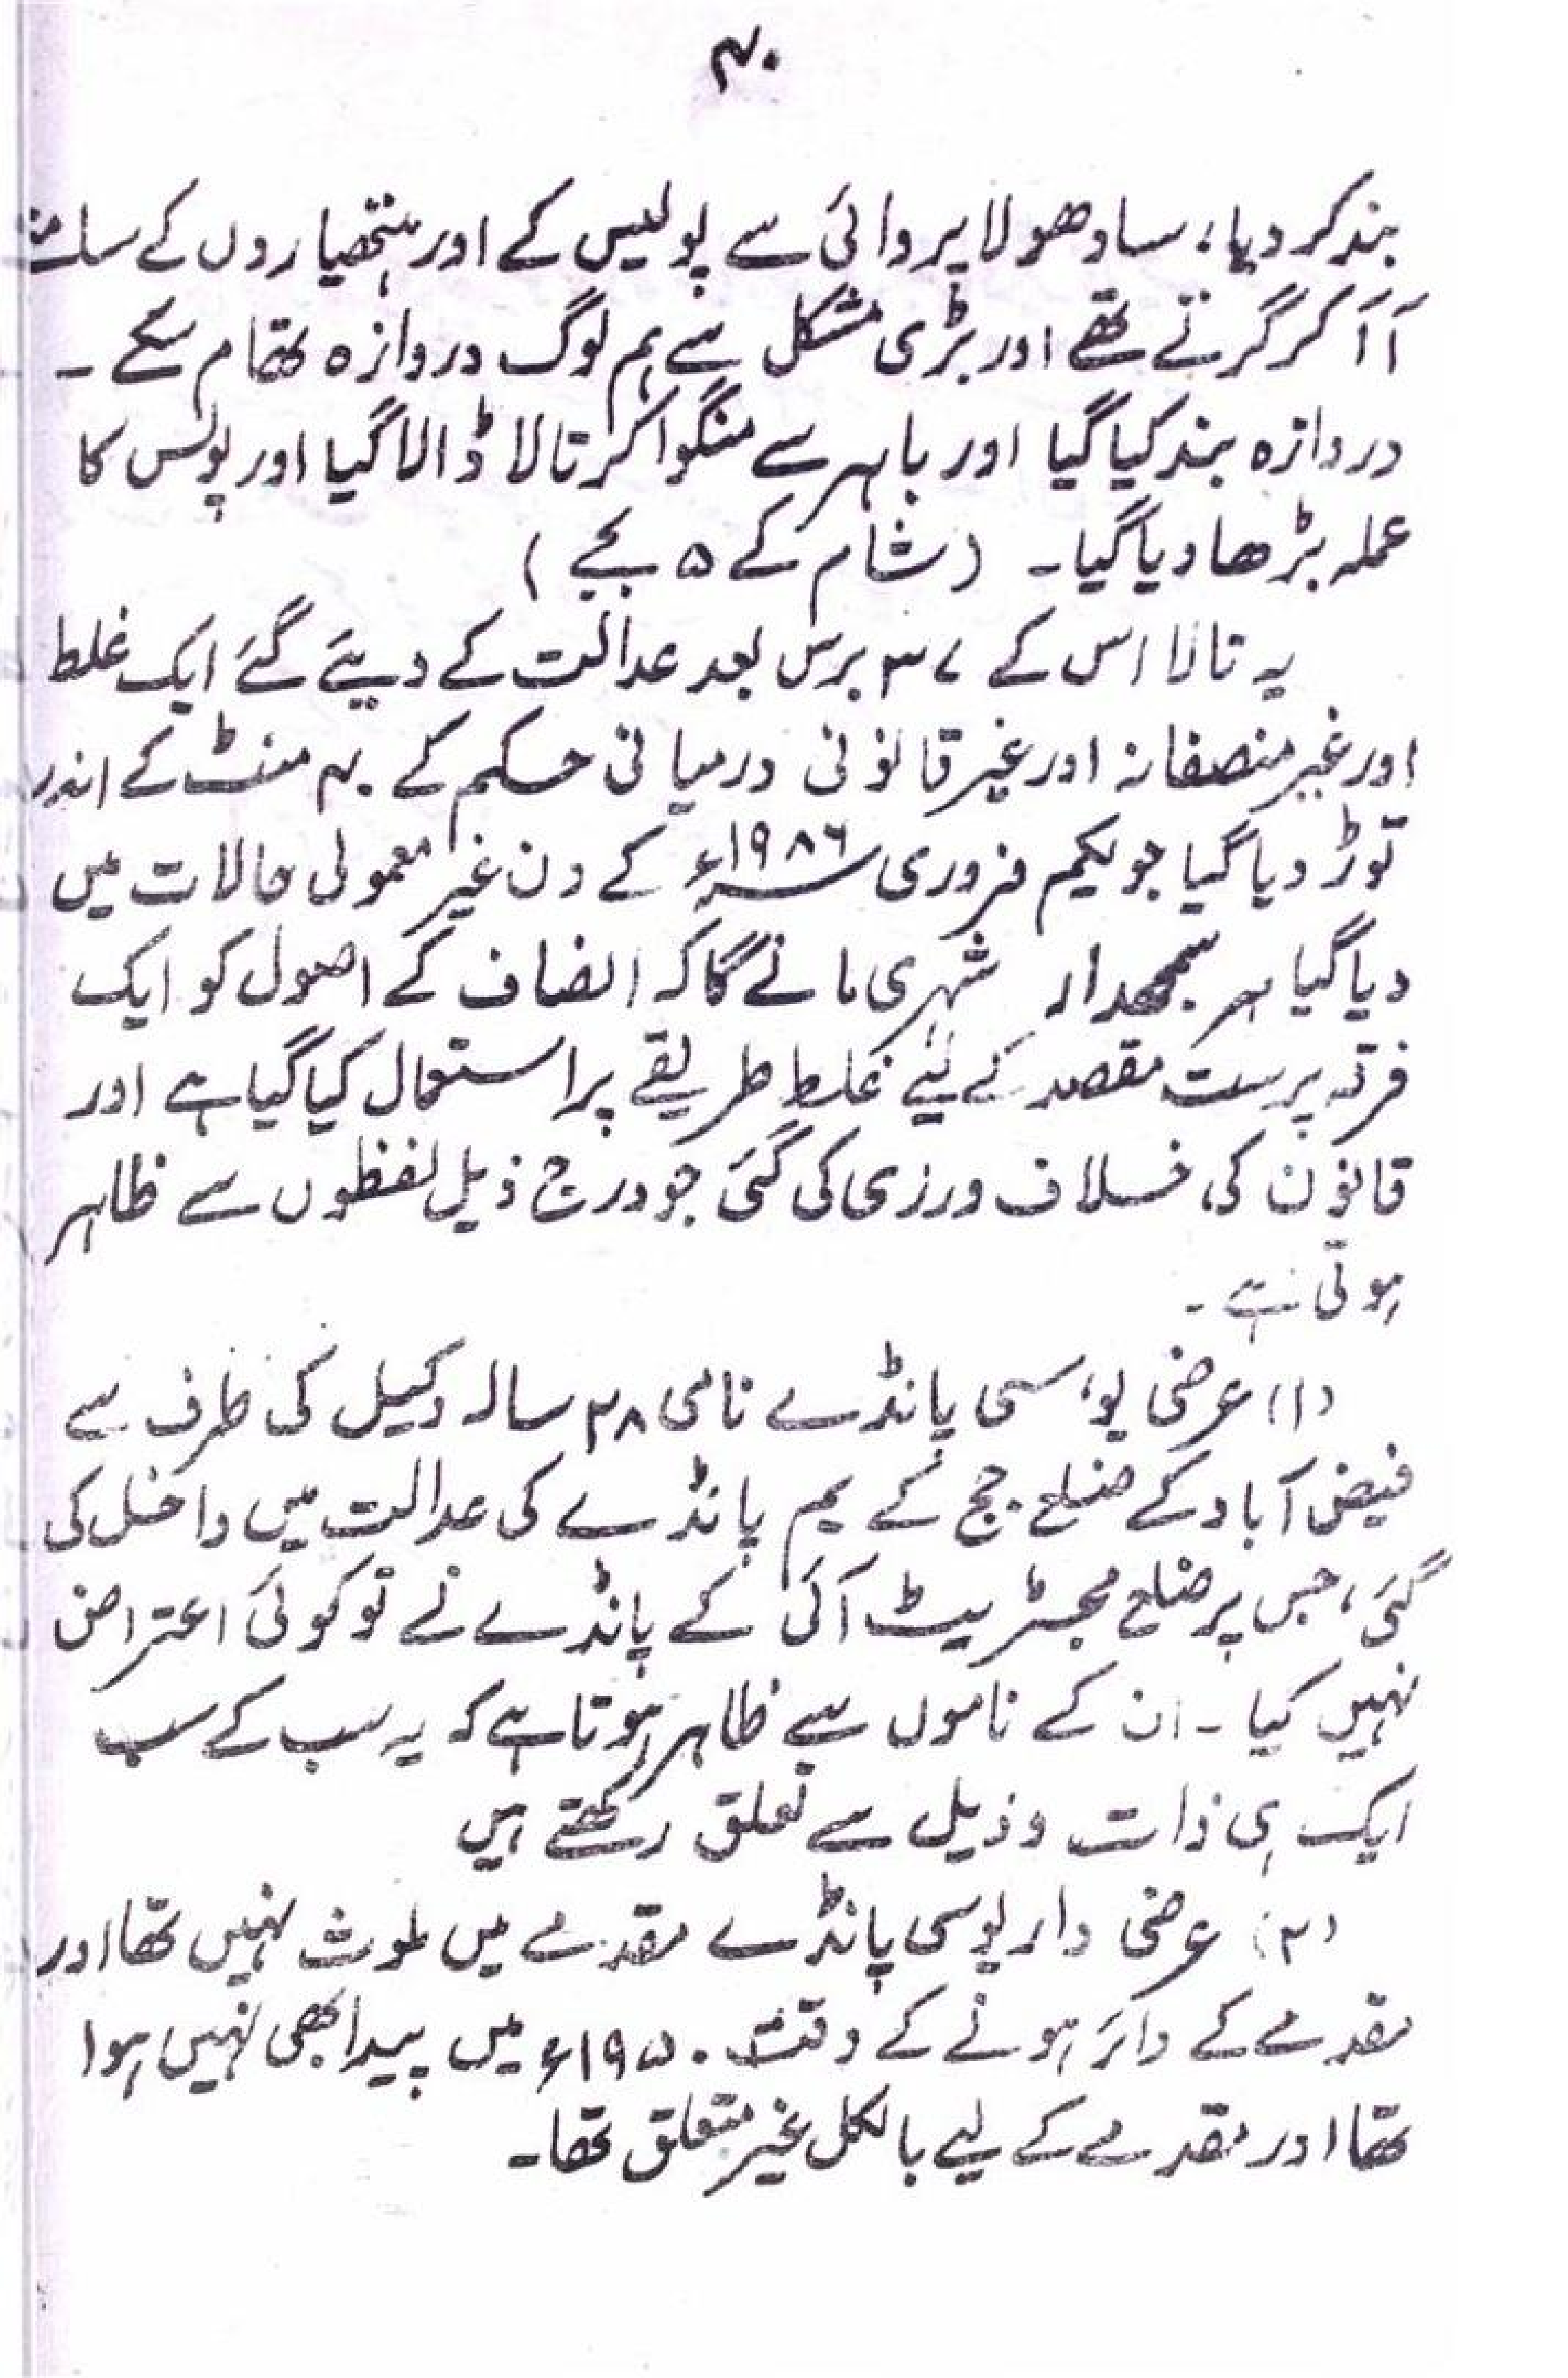 ۴۰
بند کر دیا، سادھو لاپروائی سے پولیس کے اور ہتھیاروں کے سامنے
آ آ کر گرتے تھے اور بڑی مشکل سے ہم لوگ دروازہ تھام سکے ۔
دروازہ بند کیا گیا اور باہر سے منگوا کر تالا ڈالا گیا اور پولس کا
عملہ بڑھا دیا گیا۔ (شام کے ۵ بجے)
یہ تالا اس کے ۳۷ برس بعد عدالت کے دیئے گئے ایک غلط
اور غیر منصفانہ اور غیر قانونی درمیانی حکم کے ۴۰ منٹ کے اندر
توڑ دیا گیا جو یکم فروری ۱۹۸۶ء کے دن غیر معمولی حالات میں
دیا گیا ہر سمجھدار شہری مانے گا کہ انصاف کے اصول کو ایک
فرقہ پرست مقصد کے لئے غلط طریقے پر استعمال کیا گیا ہے اور
قانون کی خلاف ورزی کی گئی جو درج ذیل لفظوں سے ظاہر
ہوتی ہے ۔
(۱) عرضی یو، سی پانڈے نامی ۲۸ سالہ وکیل کی طرف سے
فیض آباد کے ضلع جج کے یم پانڈے کی عدالت میں داخل کی
گئی، جس پر ضلع مجسٹریٹ آئی کے پانڈے نے تو کوئی اعتراض
نہیں کیا ۔ ان کے ناموں سے ظاہر ہوتا ہے کہ یہ سب کے سب
ایک ہی ذات و ذیل سے تعلق رکھتے ہیں
(۲) عرضی دار یوسی پانڈے مقدمے میں ملوث نہیں تھا اور
مقدمے کے دائر ہونے کے وقت ۱۹۵۰ء میں پیدا بھی نہیں ہوا
تھا اور مقدمے کے لیے بالکل غیر متعلق تھا۔